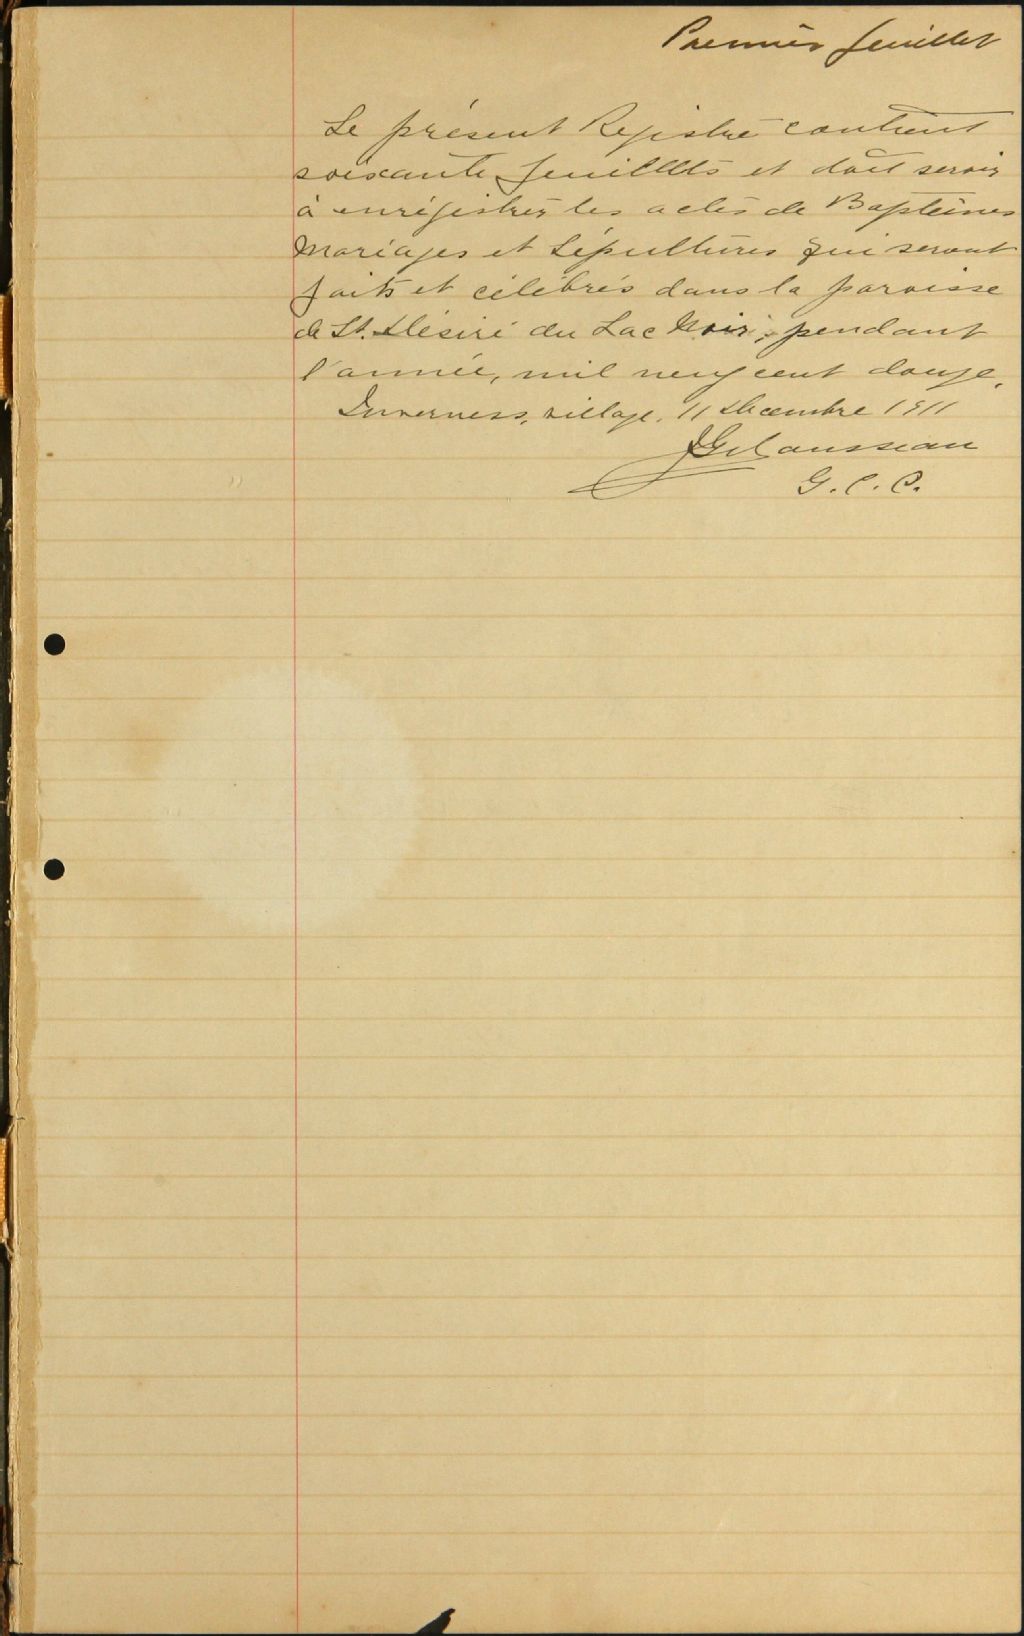 Premier feuillet
Le présent Registre contient
soixante feuillets et doit servir
à enrégistrer les actes de Baptêmes
Mariages et Sépultures qui seront
faits et célébrés dans la paroisse
de St. Désiré du Lac Noir, pendant
l'année, mil neuf cent douze.
Inverness, village, 11 Décembre 1911
G. C. C.